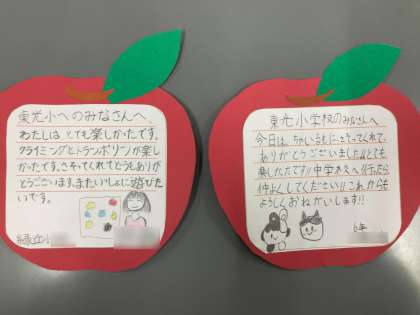 東光小へのみなさんへ。
わたしは とても楽しかったです。
クライミングとトランポリンが楽し
かったです。さそってくれてどうもあり
がとうございます。またいっしょに遊びた
いです。
東光小学校のみなさんへ
今日は、ちゃいるどに、さそってくれて、
ありがとうございました!!とても
楽しかたです!!中学きへ行ったら
仲よくしてください!!これからも
よろしくおねがいします!!
6年